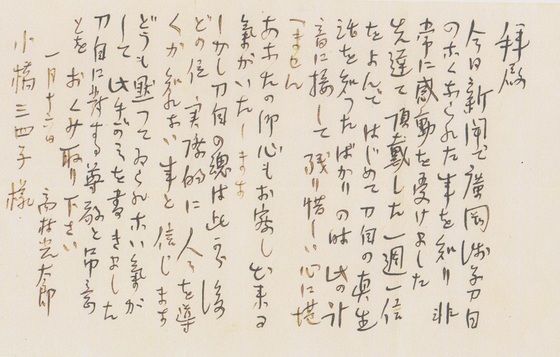 拝啓
今日新聞で廣岡浅子刀自
のなくなられた事を知り 非
常に感動を受けました
先達て頂戴した一週一信
をよんで はじめて刀自の真生
活を知つたばかりの時 此の訃
音に接して 残り惜しい心に堪
へません
あなたの御心もお察し出来る
氣がいたします
しかし刀自の魂は此後
どの位 実際的に 人々を導
くか知れない事と信じます
どうも黙つてゐられない氣が
して 此だけを書きました
刀自に対する尊敬と吊意
とを おくみ取り下さい
一月十六日 高村光太郎
小橋三四子様